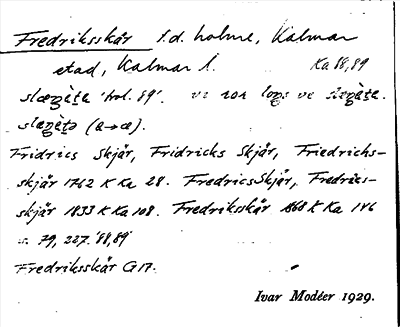 Fredriksskär f.d. holme, Kalmar
stad, Kalmar l. Ka 88,89
slægète 'hol. 89'. vi
slægètə (a→æ).
Fridrics Skjär, Fridricks Skjär, Friedrichs-
skjär 1762 K Ka 28. FredricsSkjär, Fredriks-
skjär 1833 K Ka 108. Fredriksskär 1868 K Ka 146
79, 227. 88,89
Fredriksskär G 17.
Ivar Modéer 1929.